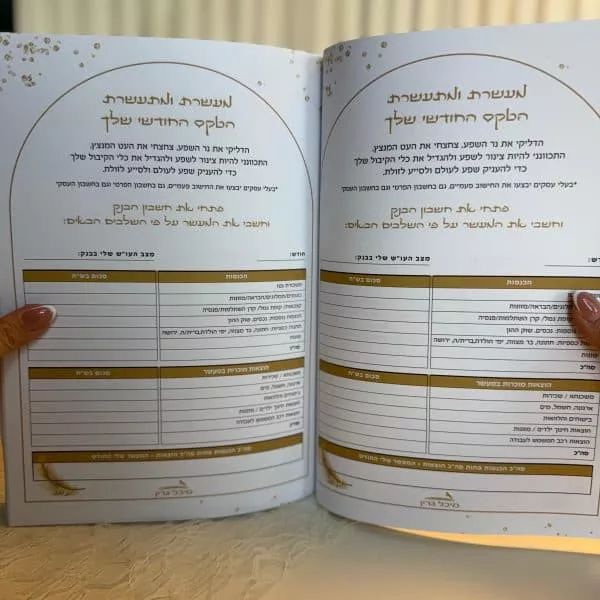 מעשרת ומתעשרת
הטקס החודשי שלך
הדליקי את נר השפע, צחצחי את העט המנצץ,
התכווני להיות צינור לשפע ולהגדיל את כלי הקיבול שלך
כדי להעניק שפע לעולם ולסייע לזולת.
*בעלי עסקים יבצעו את החישוב פעמיים, גם בחשבון הפרטי וגם בחשבון העסקי
פתחי את חשבון הבנק
וחשבי את המעשר על פי השלבים הבאים:
חודש: מצב העו"ש שלי בבנק:
הכנסות סכום בש"ח
משכורת נטו
קופת גמל/ קרן השתלמות/פנסיה
הכנסות נוספות: נכסים, שוק ההון
כספיות: חתונה, בר מצווה, ימי הולדת,ברית/ה, ירושה
סה"כ
הוצאות מוכרות במעשר סכום בש"ח
משכנתא / שכירות
ארנונה, חשמל, מים
ביטוחים והלוואות
הוצאות חינוך ילדים / מזונות
הוצאות רכב המשמש לעבודה
סה"כ
סה"כ הכנסות פחות סה"כ הוצאות = המעשר שלי החודש
מיכל גרין
מעשרת ומתעשרת
הטקס החודשי שלך
הדליקי את נר השפע, צחצחי את העט המנצץ,
התכווני להיות צינור לשפע ולהגדיל את כלי הקיבול שלך
כדי להעניק שפע לעולם ולסייע לזולת.
*בעלי עסקים יבצעו את החישוב פעמיים, גם בחשבון הפרטי וגם בחשבון העסקי
פתחי את חשבון הבנק
וחשבי את המעשר על פי השלבים הבאים:
חודש: מצב העו"ש שלי בבנק:
הכנסות סכום בש"ח
משכורת נטו
קצבאות/ קופת גמל/ קרן השתלמות/פנסיה
הכנסות נוספות: נכסים, שוק ההון
מתנות כספיות: חתונה, בר מצווה, ימי הולדת,ברית/ה, ירושה
סה"כ
הוצאות מוכרות במעשר סכום בש"ח
משכנתא / שכירות
ארנונה, חשמל, מים
ביטוחים והלוואות
הוצאות חינוך ילדים / מזונות
הוצאות רכב המשמש לעבודה
סה"כ
סה"כ הכנסות פחות סה"כ הוצאות = המעשר שלי החודש
מיכל גרין